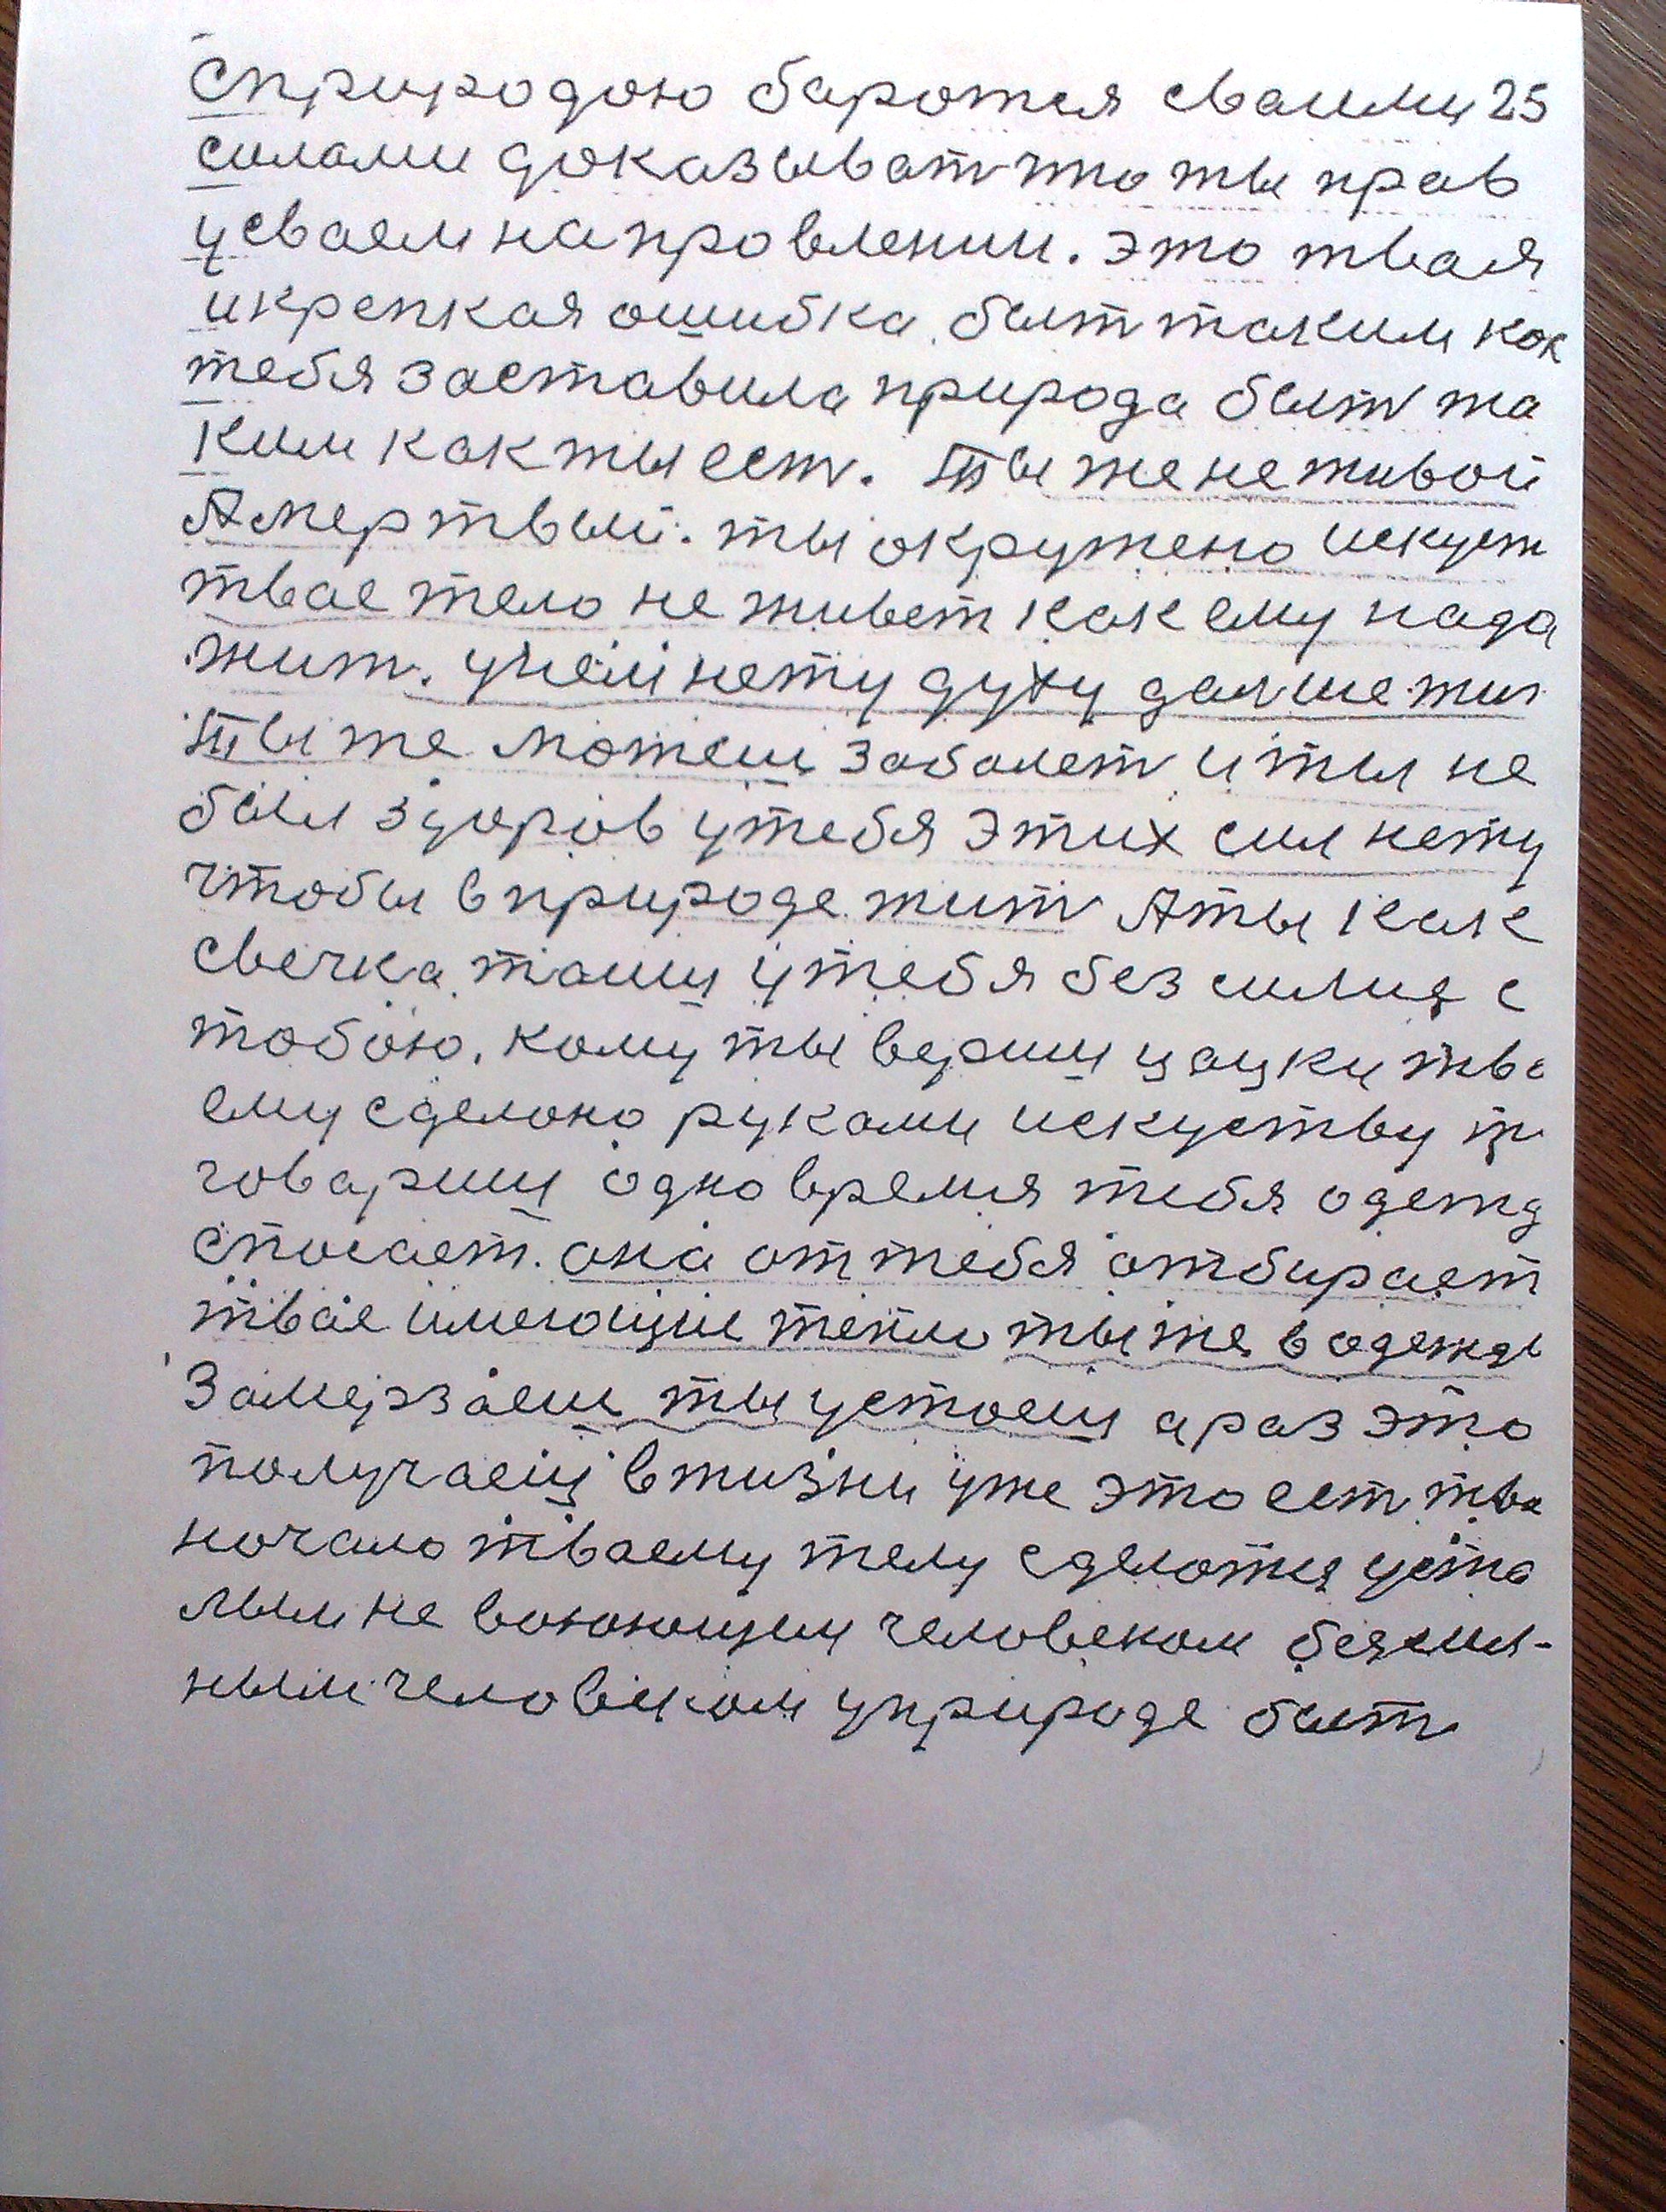 сприродою баротся сваими 25
силами доказыват что ты прав
усваем напровлении. это твая
и крепкая ошибка. быт таким как
тебя заставила природа быт та
ким как ты ест. Ты же не живой
А мертвый. ты окружено искуст
твае тело не живет как ему нада
жит. у ней нету духу далше жит
Ты же можеш заболет и ты не
был здоров у тебя этих сил нету
чтобы в природе жит А ты как
свечка таиш у тебя без силия с
тобою. кому ты вериш науки тва
ему сделоно руками искуству
говариш одно время тебя одежд
спосает. она от тебя отбирает
твае имеющие тепло ты же в одежде
Замерзаеш ты устоеш а раз это
получаеш в жизни уже это ест тва
начало тваему телу сделотся уста
лым не воюющим человеком безсил-
ным человеком у природе быт